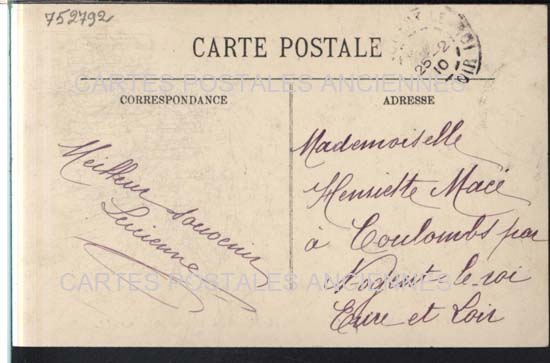 752792
CARTE POSTALE
25-2
10
CARTES POSTALES ANCIENNES
CORRESPONDANCE
ADRESSE
Meilleur souvenir
Lucienne
Mademoiselle
Henriette Macé
à Coulombs par
Nogent-le-roi
Eure et Loir
CARTES POSTALES ANCIENNES